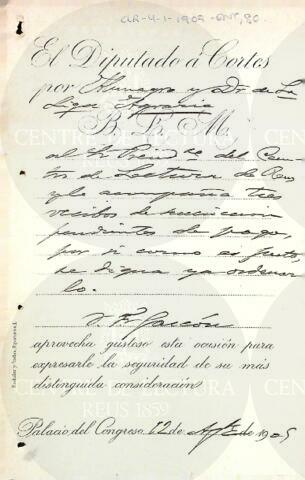 El Diputado á Cortes
por Almagro y Dr. de La
Liga Agraria
B. L. M.
al Sr. Presid.te del Cen-
tro de Lectura de Reus
y le acompaña tres
recibos de suscricion
pendientes de pago,
por si como es justo,
se digna ya ordenar
lo.
aprovecha gustoso esta ocasión para
expresarle la seguridad de su más
distinguida consideración.
Palacio del Congreso 12 de de 1905
CENTRE DE LECTURA
REUS 1859